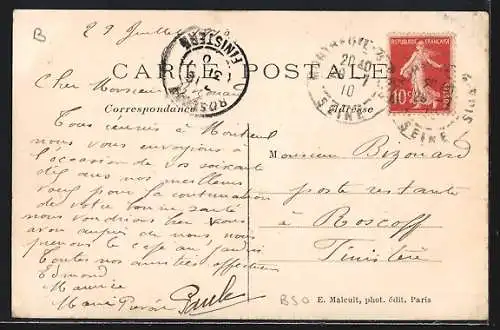 B
29 Juillet
CARTE POSTALE
Correspondance
Adresse
ROSCOFF
FINISTERE
SEINE
20
10
REPUBLIQUE FRANÇAISE
10c
SEINE
Cher Monsieur Bizouard
Tous réunis à Montreuil
nous vous envoyons à
l'occasion de vos soixante
dix ans nos meilleurs
vœux pour la continuation
de votre bonne santé
nous voudrions bien vous
avoir auprès de nous, nous
prenons le café au jardin
Toutes nos amitiés affectueuses
Edmond
Maurice
Marie
Monsieur Bizouard
poste restante
à Roscoff
Finistère
BSO
E. Malcuit, phot. édit. Paris